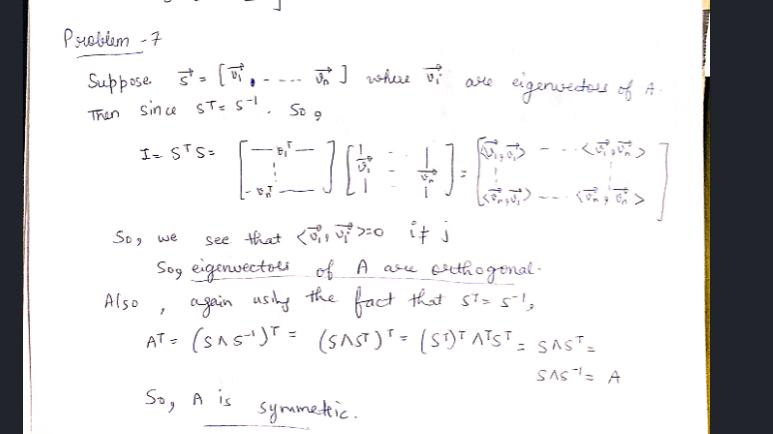 Problem - 7
Suppose S⃗ = [v⃗₁, - - - - v⃗ₙ] where v⃗ᵢ are eigenvectors of A.
Then since Sᵀ = S⁻¹. So,
I = SᵀS = [— v₁ᵀ — ⋮ - vₙᵀ —] [| v⃗₁ | - - - | v⃗ₙ |] = [<v⃗₁, v⃗₁> - - - <v⃗₁, v⃗ₙ> ⋮ ⋮ <v⃗ₙ, v⃗₁> - - - <v⃗ₙ, v⃗ₙ>]
So, we see that <v⃗ᵢ, v⃗ⱼ> = 0 i ≠ j
So, eigenvectors of A are orthogonal.
Also, again using the fact that Sᵀ = S⁻¹,
Aᵀ = (SΛS⁻¹)ᵀ = (SΛSᵀ)ᵀ = (Sᵀ)ᵀ ΛᵀSᵀ = SΛSᵀ =
SΛS⁻¹ = A
So, A is symmetric.